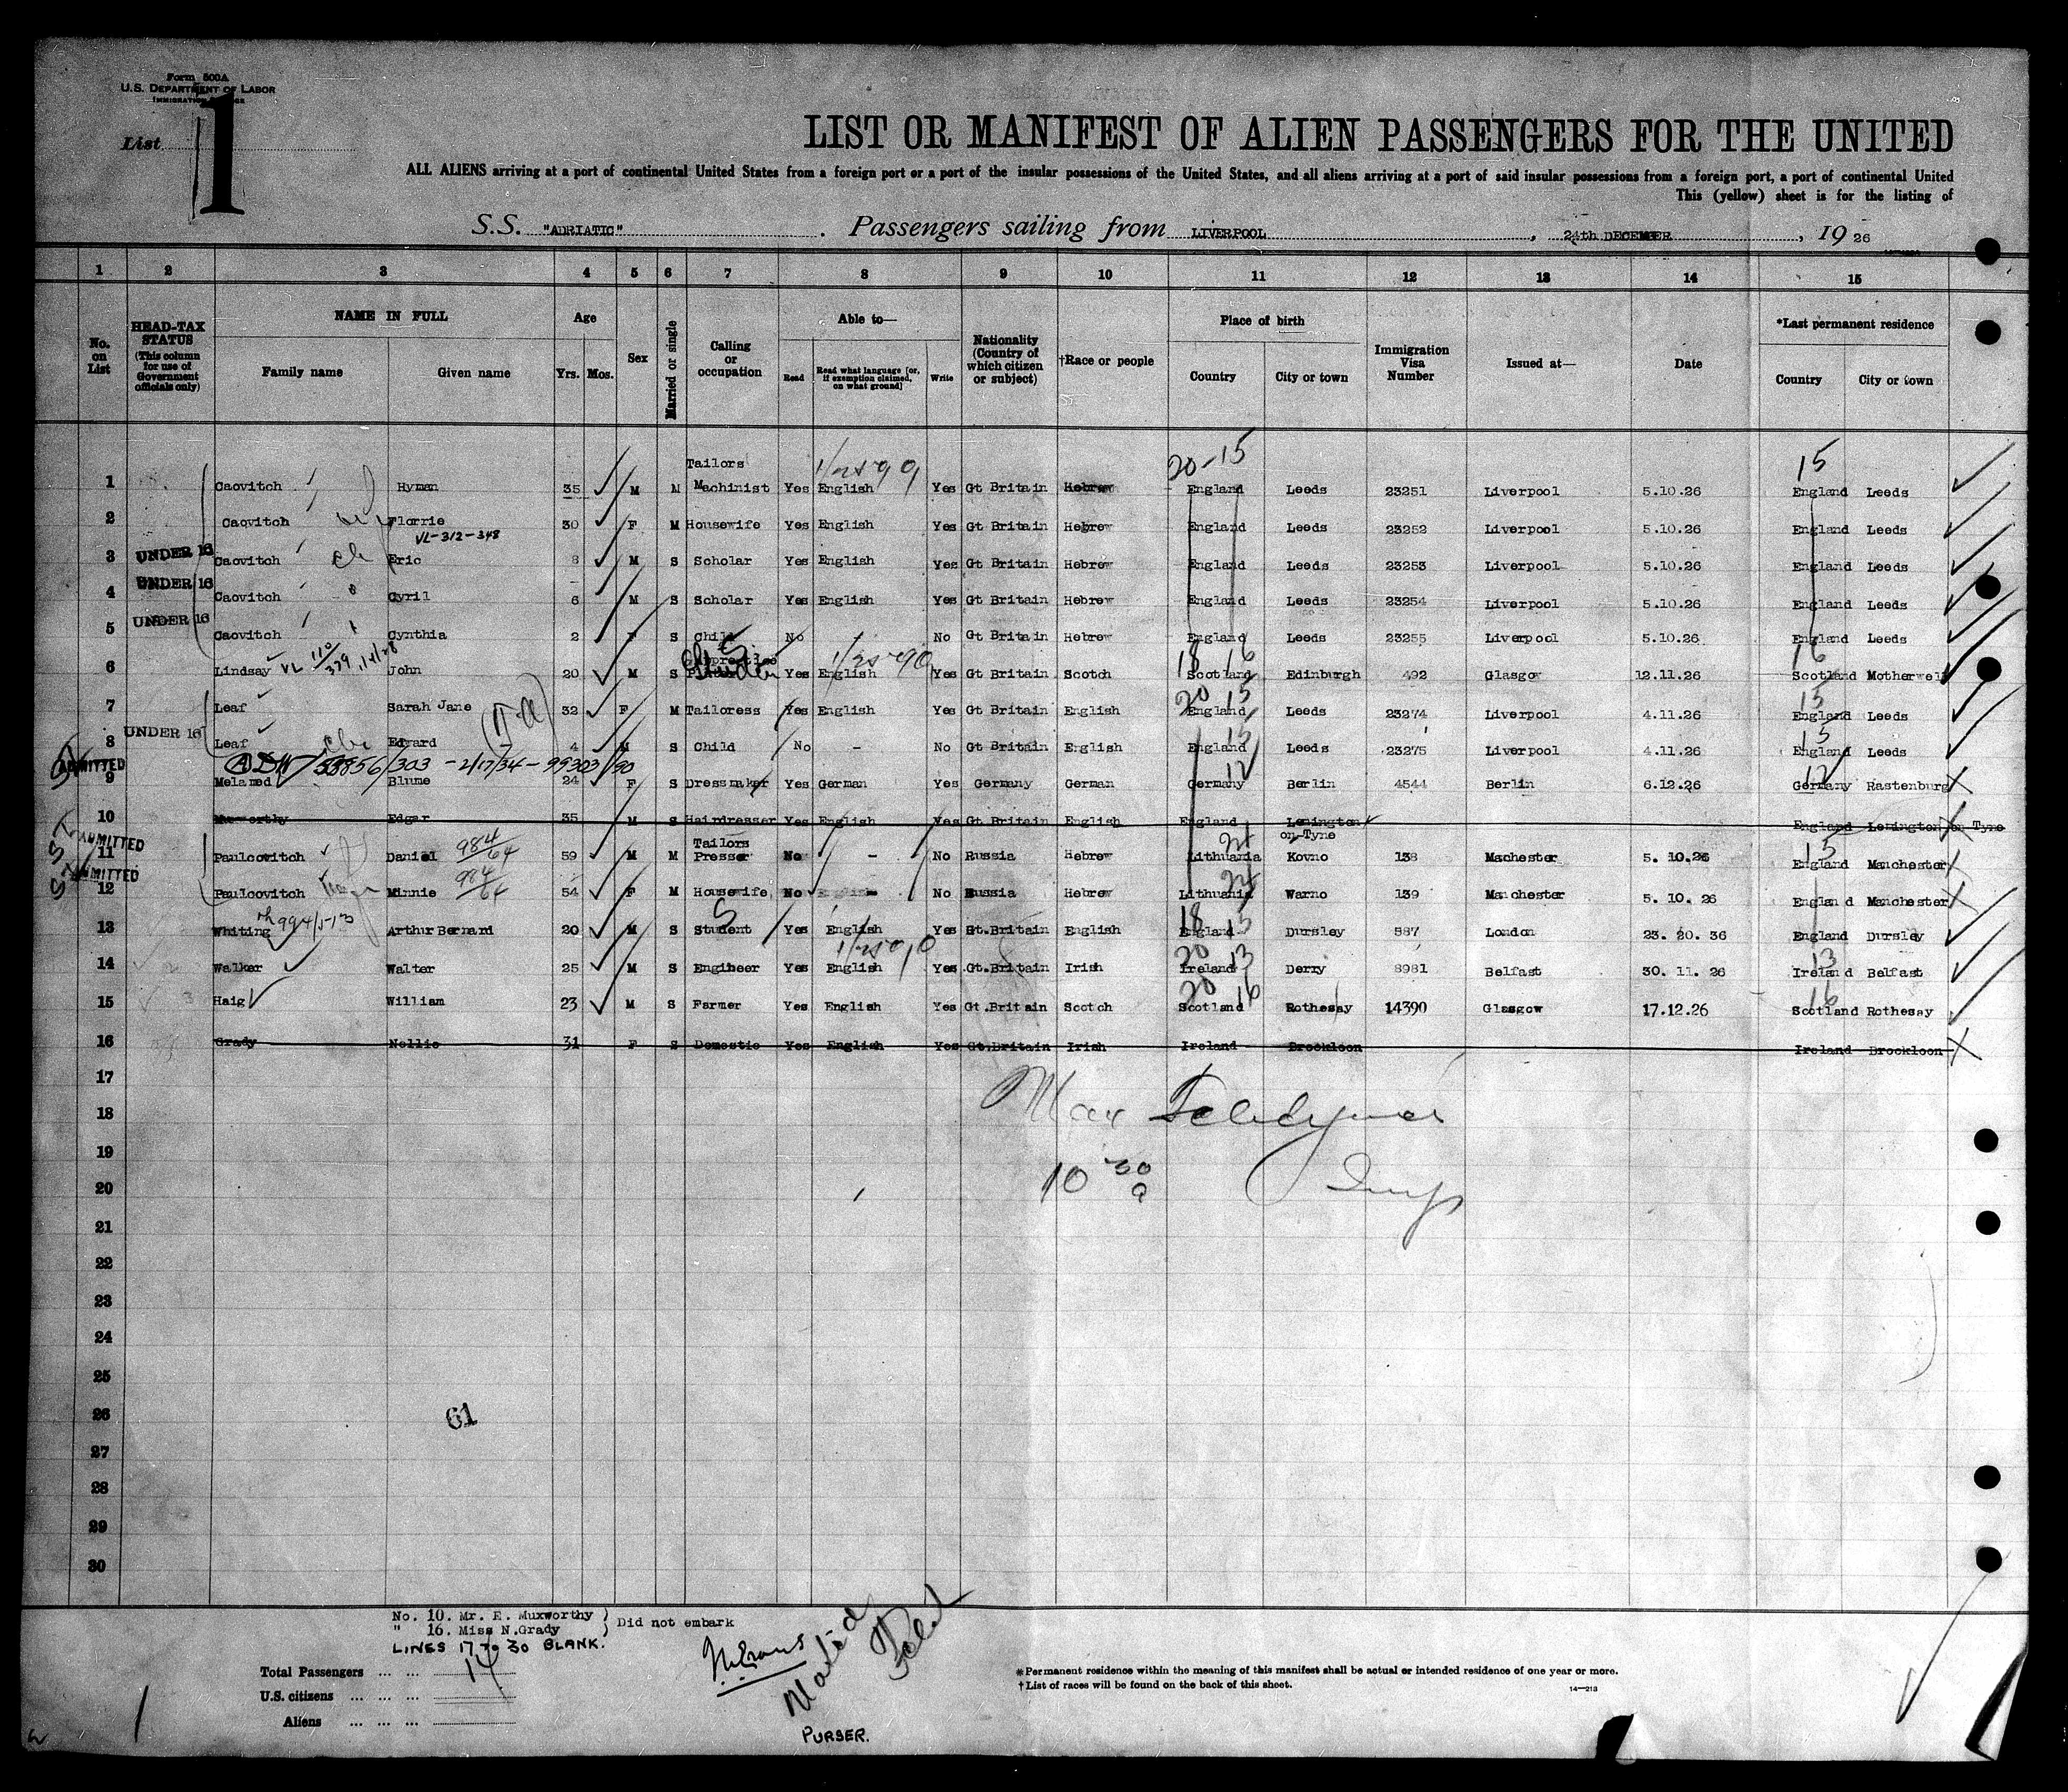 Form 500A
U.S. DEPARTMENT OF LABOR
IMMIGRATION
List 1
LIST OR MANIFEST OF ALIEN PASSENGERS FOR THE UNITED
ALL ALIENS arriving at a port of continental United States from a foreign port or a port of the insular possessions of the United States, and all aliens arriving at a port of said insular possessions from a foreign port, a port of continental United
This (yellow) sheet is for the listing of
S.S. "ADRIATIC". Passengers sailing from LIVERPOOL, 24th DECEMBER, 19 26
1 2 3 4 5 6 7 8 9 10 11 12 13 14 15
No. on List
HEAD-TAX STATUS (This column for use of Government officials only)
NAME IN FULL
Family name Given name
Age
Yrs. Mos.
Sex
Married or single
Calling or occupation
Able to—
Read Read what language [or, if exemption claimed, on what ground] Write
Nationality (Country of which citizen or subject)
†Race or people
Place of birth
Country City or town
Immigration Visa Number
Issued at—
Date
*Last permanent residence
Country City or town
Tailors 20-15 15
1 Caovitch Hyman 35 M M Machinist Yes English Yes Gt Britain Hebrew England Leeds 23251 Liverpool 5.10.26 England Leeds
2 Caovitch Florrie 30 F M Housewife Yes English Yes Gt Britain Hebrew England Leeds 23252 Liverpool 5.10.26 England Leeds
VL-312-348
3 UNDER 16 Caovitch Eric 8 M S Scholar Yes English Yes Gt Britain Hebrew England Leeds 23253 Liverpool 5.10.26 England Leeds
4 UNDER 16 Caovitch Cyril 6 M S Scholar Yes English Yes Gt Britain Hebrew England Leeds 23254 Liverpool 5.10.26 England Leeds
5 UNDER 16 Caovitch Cynthia 2 F S Child No No Gt Britain Hebrew England Leeds 23255 Liverpool 5.10.26 England Leeds
18 16 16
6 Lindsay VL 110/379 John 20 M S Student Yes English Yes Gt Britain Scotch Scotland Edinburgh 492 Glasgow 12.11.26 Scotland Motherwell
20 15 15
7 Leaf Sarah Jane 32 F M Tailoress Yes English Yes Gt Britain English England Leeds 23274 Liverpool 4.11.26 England Leeds
15 15
8 UNDER 16 Leaf Edward 4 M S Child No - No Gt Britain English England Leeds 23275 Liverpool 4.11.26 England Leeds
ADMITTED 58856/303 - 2/17/34 - 99303/90 12 12
9 Melamed Blume 24 F S Dressmaker Yes German Yes Germany German Germany Berlin 4544 Berlin 6.12.26 Germany Rastenburg
10 Muxworthy Edgar 35 M S Hairdresser Yes English Yes Gt Britain English England Lemington on-Tyne England Lemington on Tyne
ADMITTED 984/64 Tailors 24 15
11 Paulcovitch Daniel 59 M M Presser No - No Russia Hebrew Lithuania Kovno 138 Machester 5. 10.26 England Manchester
ADMITTED 984/64 24
12 Paulcovitch Minnie 54 F M Housewife No English - No Russia Hebrew Lithuania Warno 139 Manchester 5. 10. 26 England Manchester
S 18 15
13 Whiting Arthur Bernard 20 M S Student Yes English Yes Gt.Britain English England Dursley 587 London 23. 20. 36 England Dursley
20 13 13
14 Walker Walter 25 M S Engineer Yes English Yes Gt.Britain Irish Ireland Derry 8981 Belfast 30. 11. 26 Ireland Belfast
20 16 16
15 Haig William 23 M S Farmer Yes English Yes Gt.Britain Scotch Scotland Rothesay 14390 Glasgow 17.12.26 Scotland Rothesay
16 Grady Nellie 31 F S Domestic Yes English Yes Gt.Britain Irish Ireland Brockloon Ireland Brockloon
17
18 Max
19
20 10 30 a
21
22
23
24
25
26 61
27
28
29
30
No. 10. Mr. E. Muxworthy )
" 16. Miss N.Grady ) Did not embark
LINES 17 TO 30 BLANK.
Total Passengers ... ... 14
U.S. citizens ... ... ...
Aliens ... ... ...
PURSER.
*Permanent residence within the meaning of this manifest shall be actual or intended residence of one year or more.
†List of races will be found on the back of this sheet.
14—213